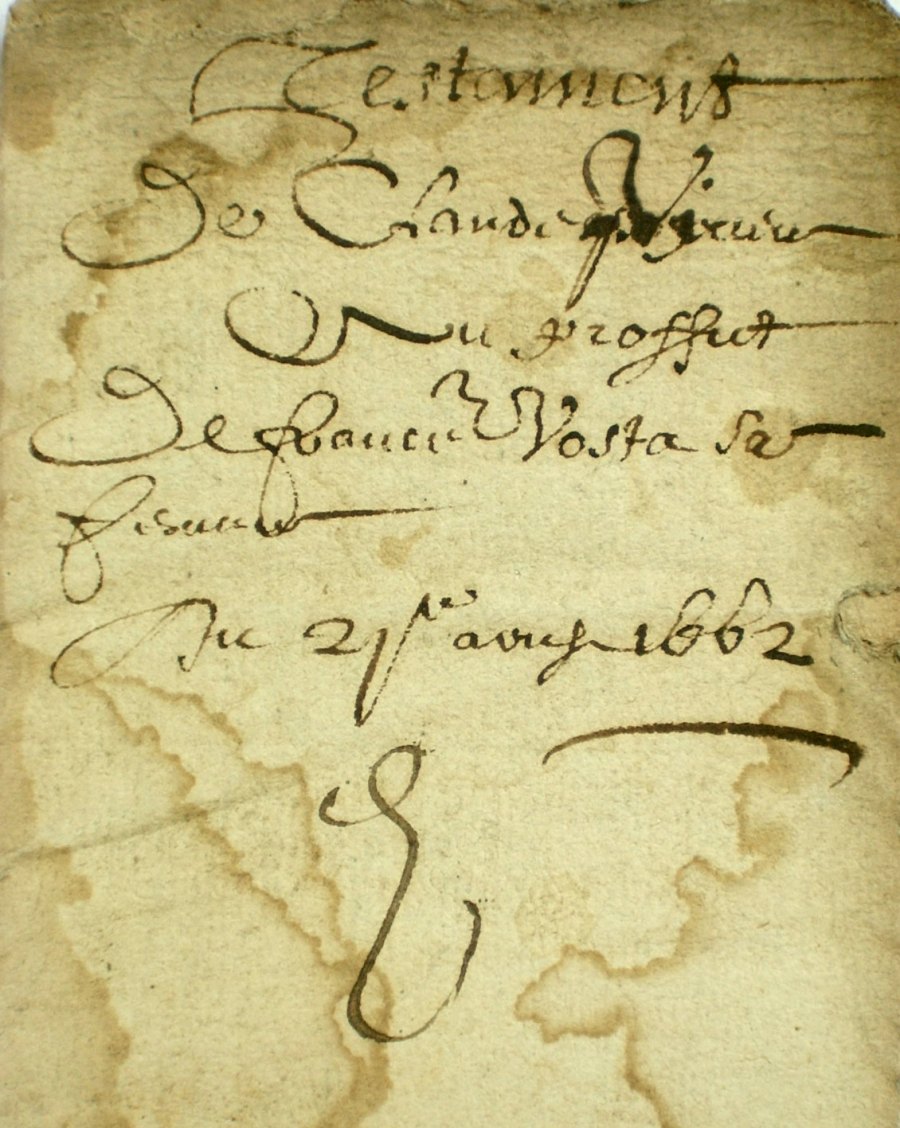 Testament
De Claude
Au proffict
De france Vosta sa
femme
Du 21e avril 1662